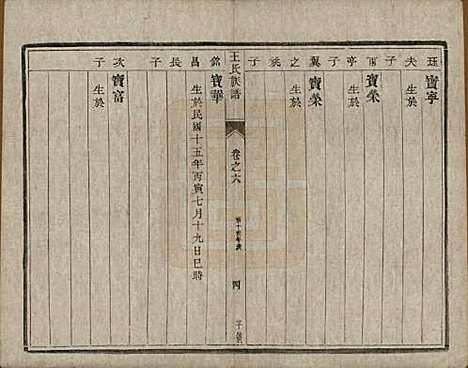 珏 寶寧
夫 生於
雨 寶榮
亭 生於
翼 寶榮
之 生於
子
王氏族譜
卷之六
四
銘 寶華
昌 生於民國十五年丙寅七月十九日巳時
長
子
次 寶富
子 生於